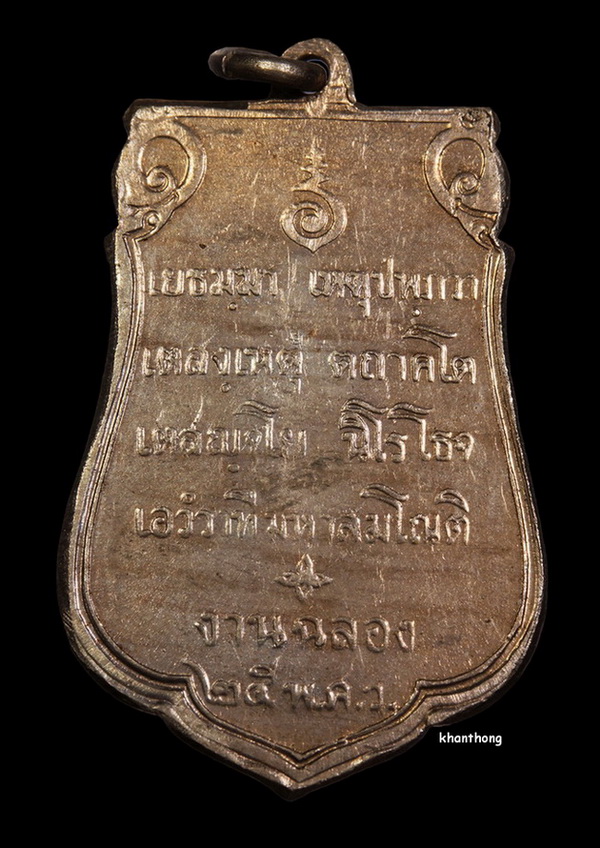 เยธมฺมา เหตุปฺพฺภวา
เตสงฺเหตุํ ตถาคโต
เตสญฺจโย นิโรโธจ
เอวํวาที มหาสมโณติ
งานฉลอง
๒๕ พ.ศ.ว.
khanthong